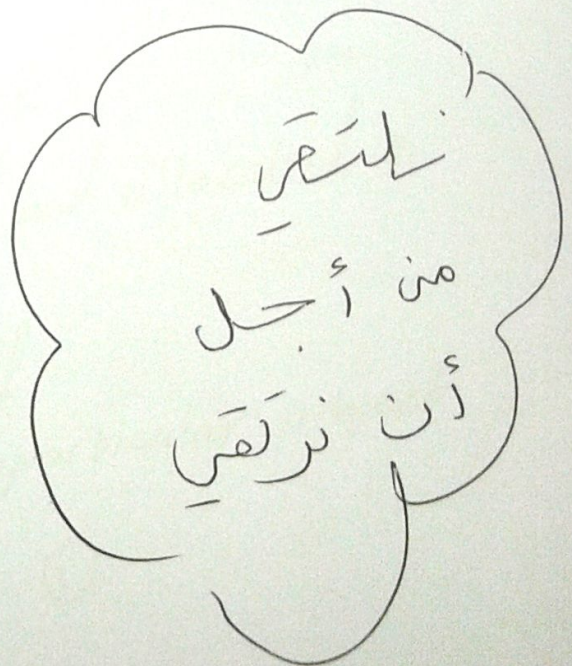 نلتقي
من أجل
أن نرتقي